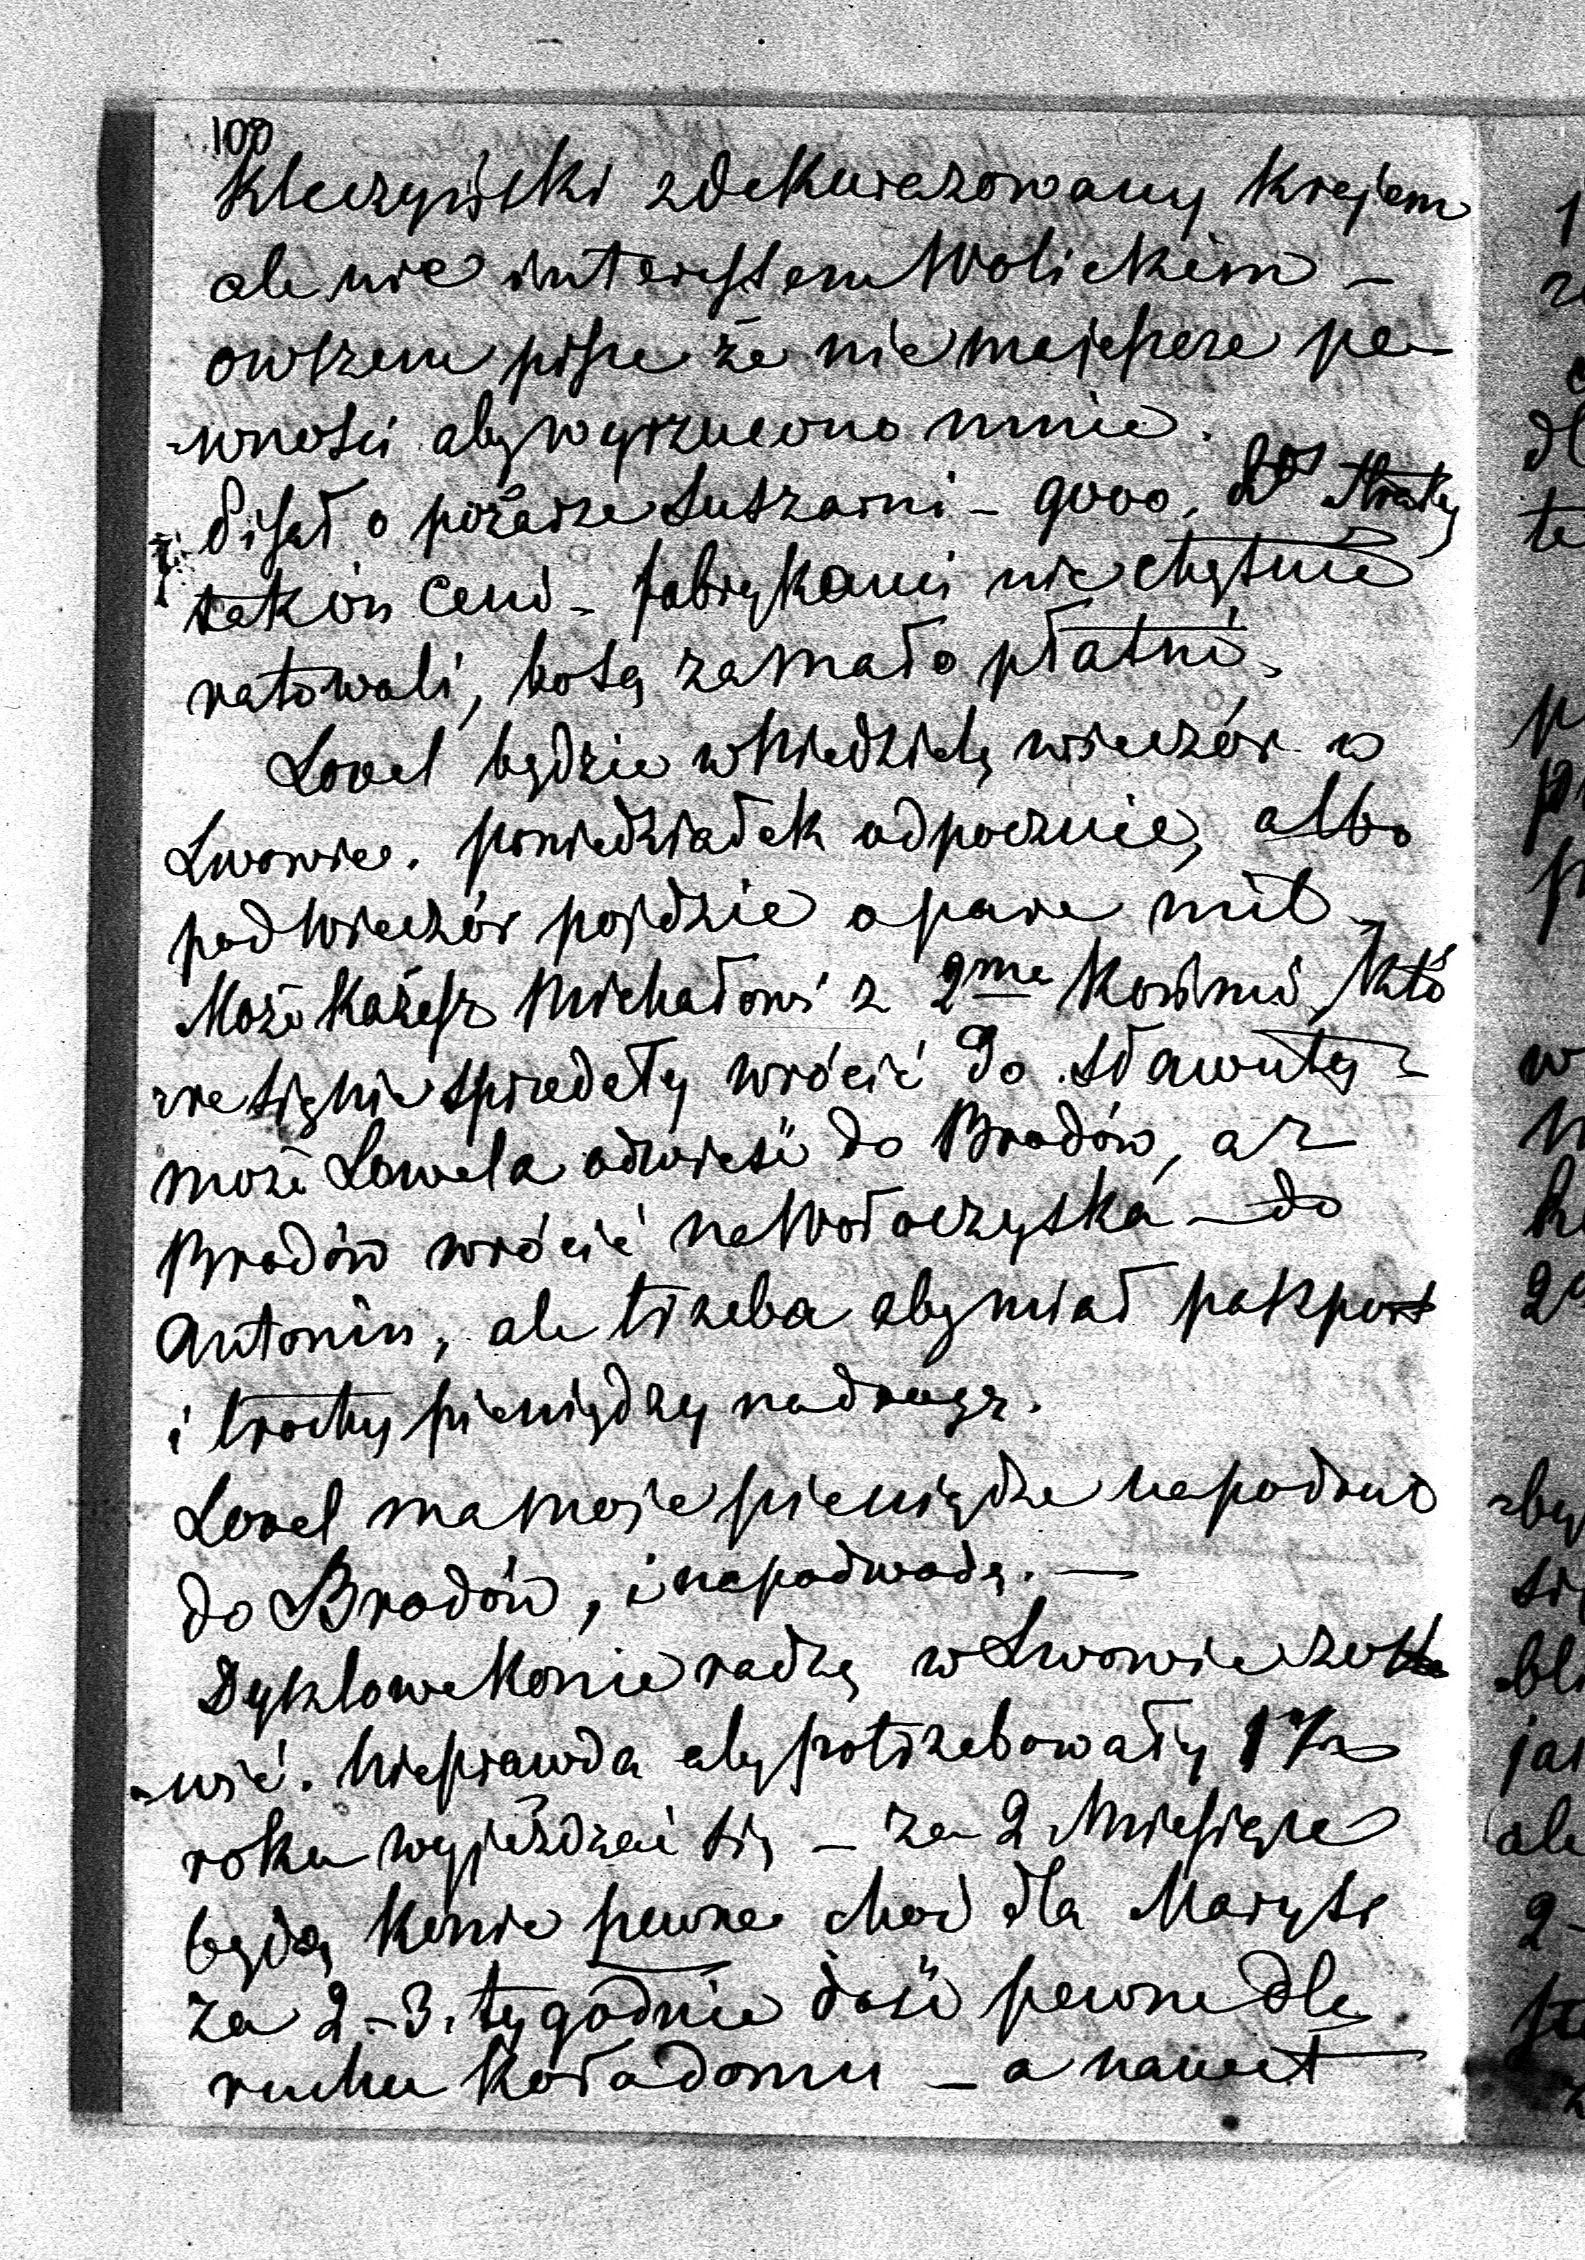 100
Kleczyński zdekurażowany krajem
ale nie interesem Wolickim –
owszem pisze że nie ma jeszcze pe-
-wności aby wyrzucono mnie.
Pisał o pożarze suszarni – 9000. straty
tak on ceni – fabrykanci nie chętnie
ratowali, bo są za mało płatni.
Lovel będzie w Niedzielę wieczór w
Lwowie. poniedziałek odpocznie, albo
pod wieczór pojdzie o pare mil –
Może każesz Michałowi z 2ma końmi, któ
-re się nie sprzedały wrócić do Sławuty –
może Lowela odwieść do Brodów, a z
Brodów wrócić na Wołoczyska – do
Antonin, ale trzeba aby miał paszport
i trochę pieniędzy na drogę.
Lovel ma moje pieniądze na podróż
do Brodów, i na podwodę. —
Dyszlowe Konie radzę w Lwowie zosta
-wić. Nieprawda aby potrzebowały 1 1/2
roku wyjeżdżać się – za 2 Miesiące
będą konie pewne choć dla Marysi
za 2–3. tygodnie dość pewne dla
ruchu koło domu – a nawet